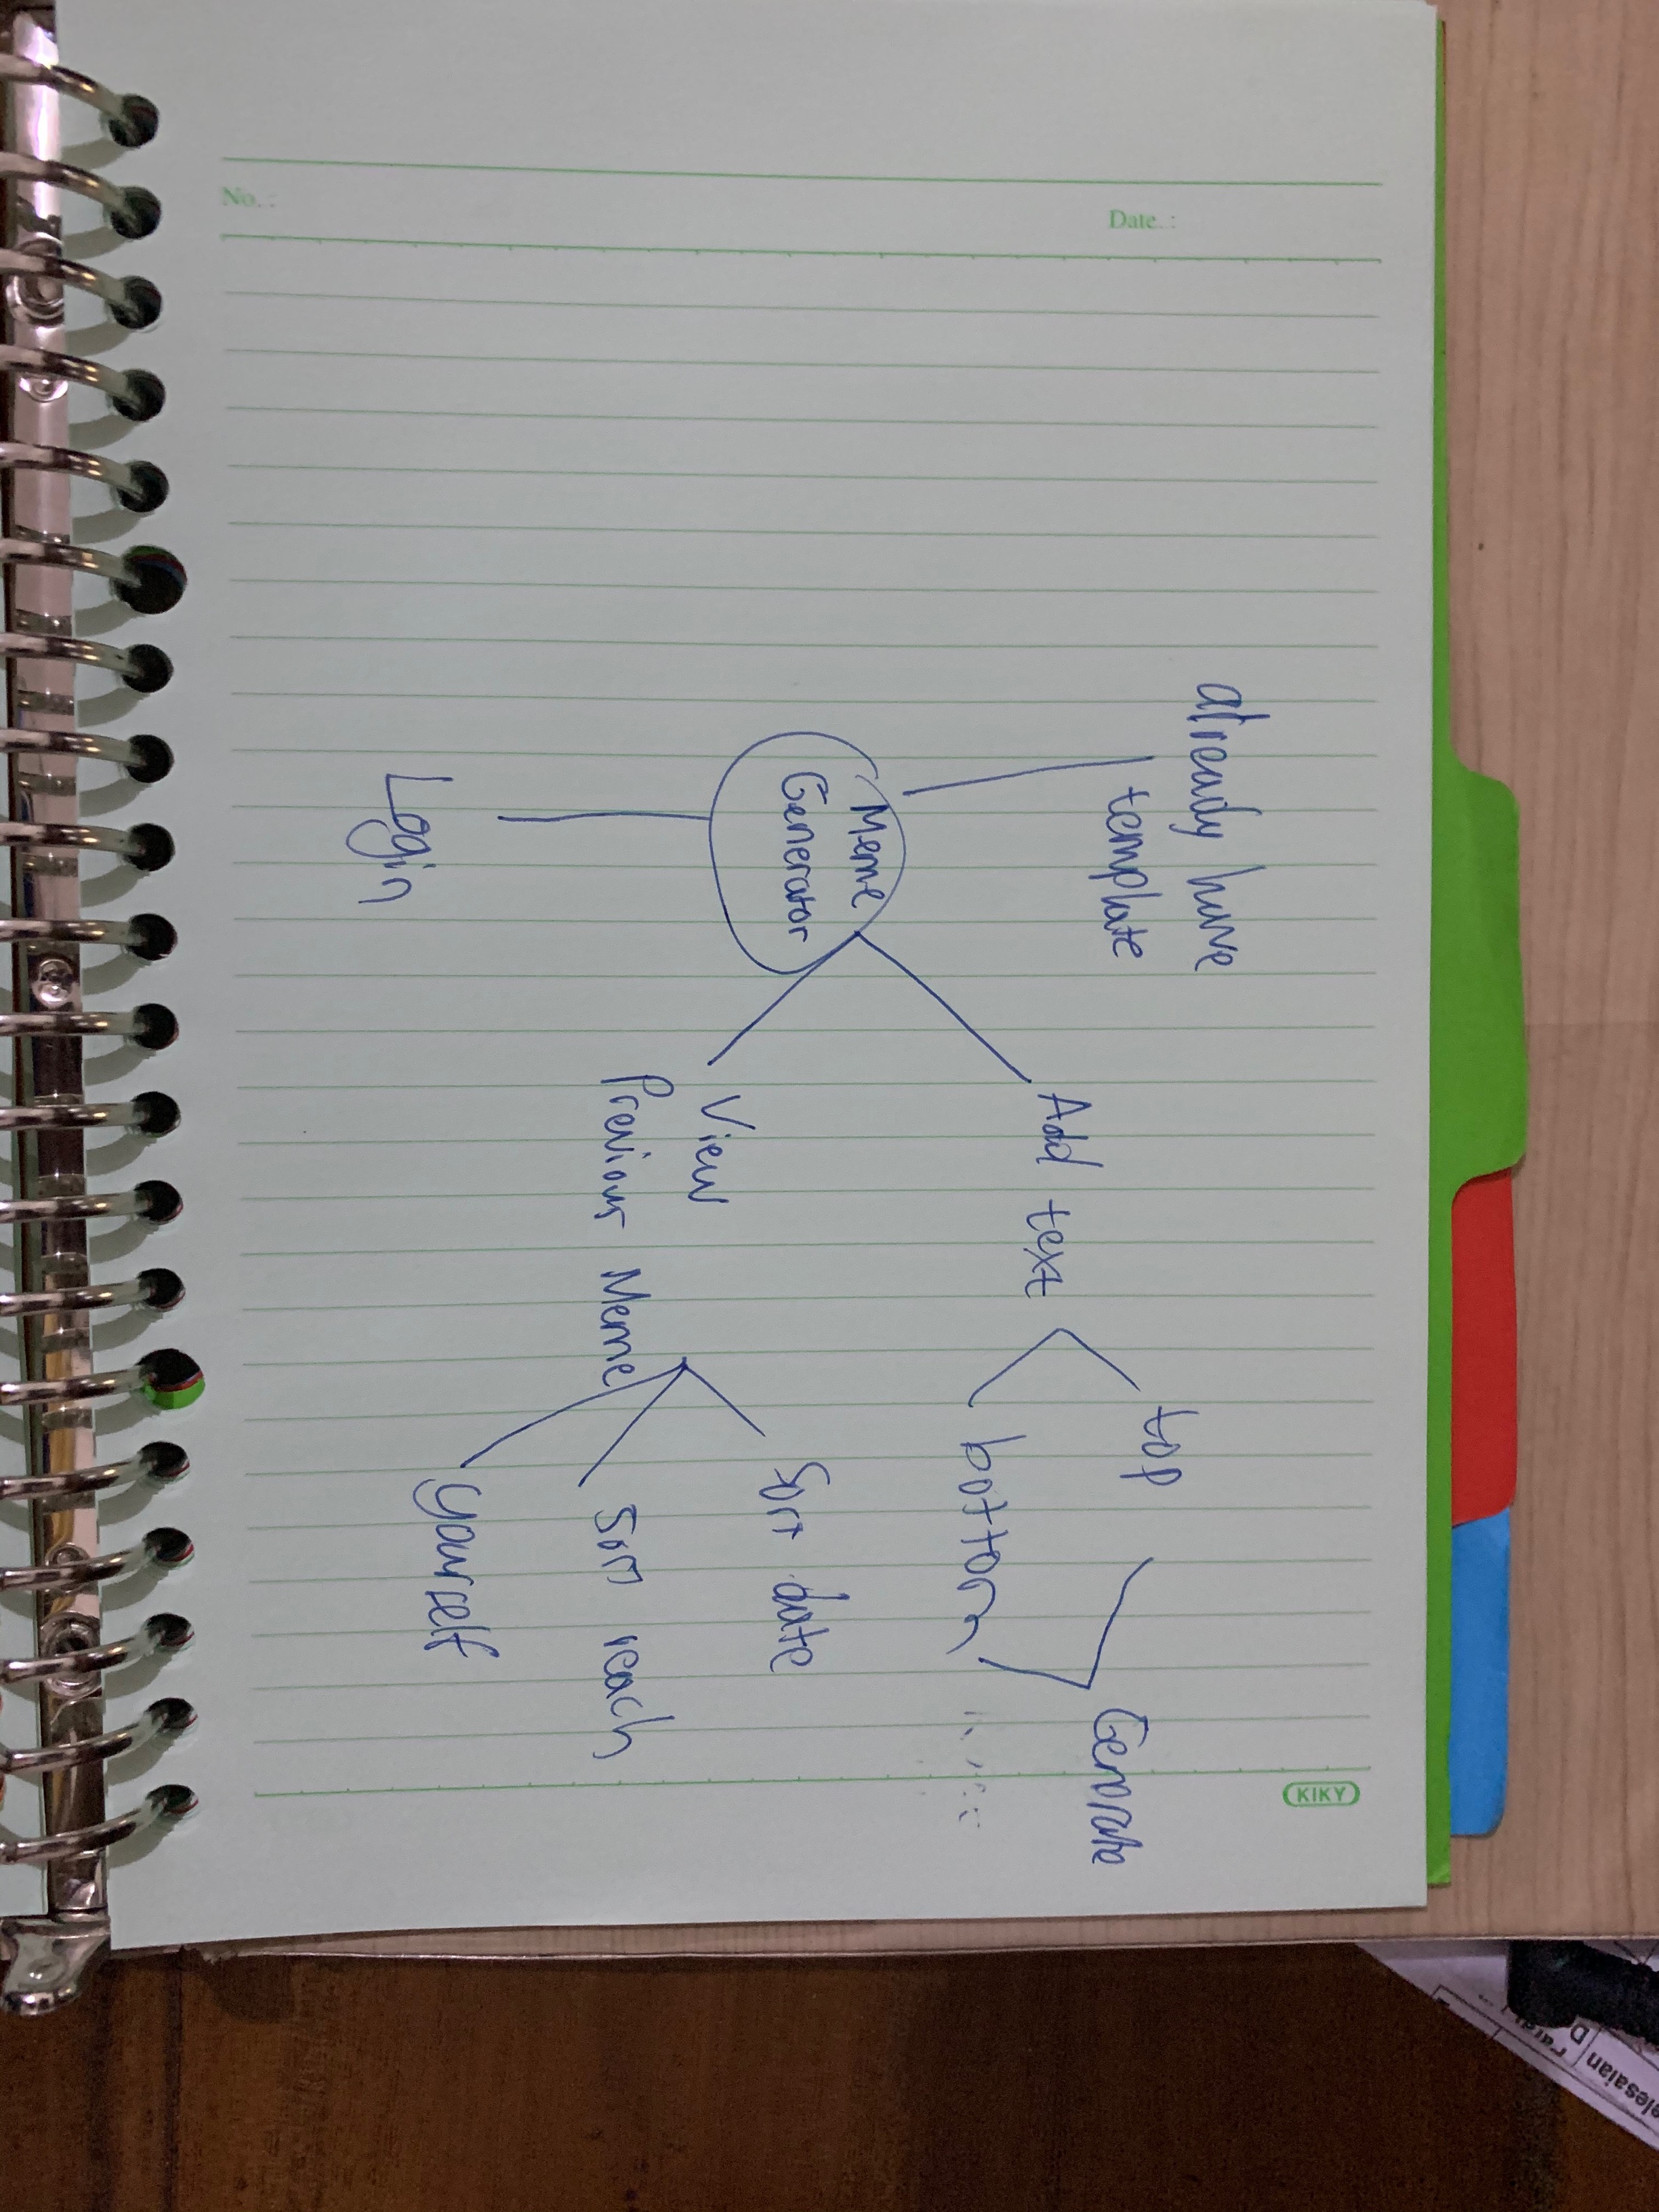 No. :
Date. :
already have
template
Meme
Generator
Login
Add text
top
bottom
Genrate
View
Previous Meme
Sort date
Sort reach
yourself
KIKY
elesaian D